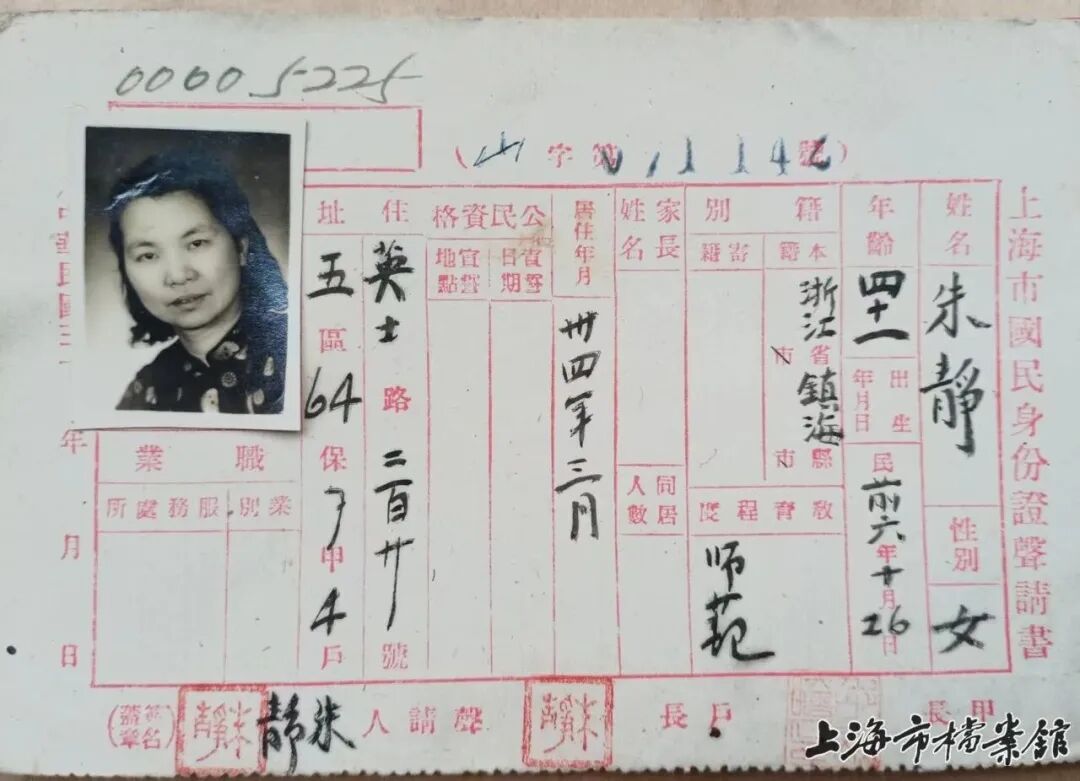 0000 5225
(山字第01142號)
上海市國民身份證聲請書
姓名
朱靜
性別
女
年齡
四十一
出生年月日
民前六年十月26日
籍別
本籍
寄籍
浙江省鎮海縣
市
市
教育程度
师范
家長姓名
同居人數
居住年月
卅四年三月
公民資格
宣誓日期
宣誓地點
住址
英士路二百廿號
五區64保甲4戶
職業
業別
服務處所
年
月
日
甲長
戶長
朱靜
聲請人
朱靜
朱靜
上海市檔案館